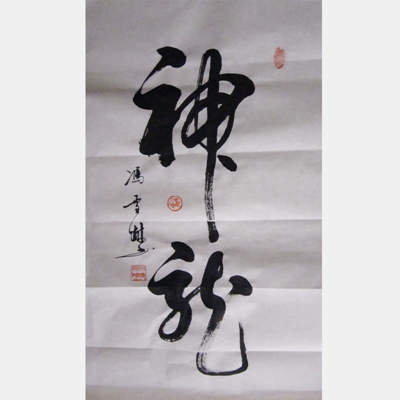 神龍
馮雪